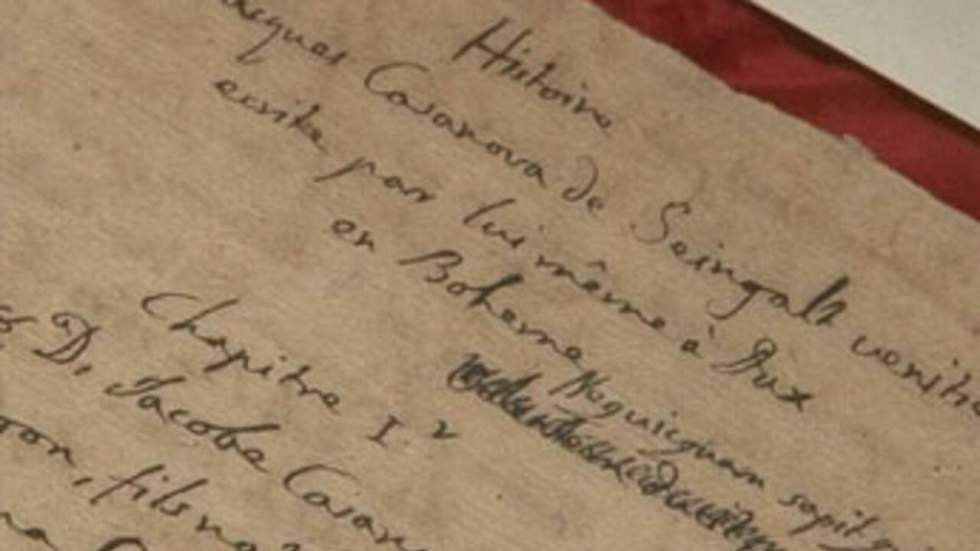 Histoire
acques Casanova de Seingalt veniti
ecrite par lui même à Dux
en Boheme
Nequicquam sapit
Chapitre I.
D. Jacobe Casan
fils na